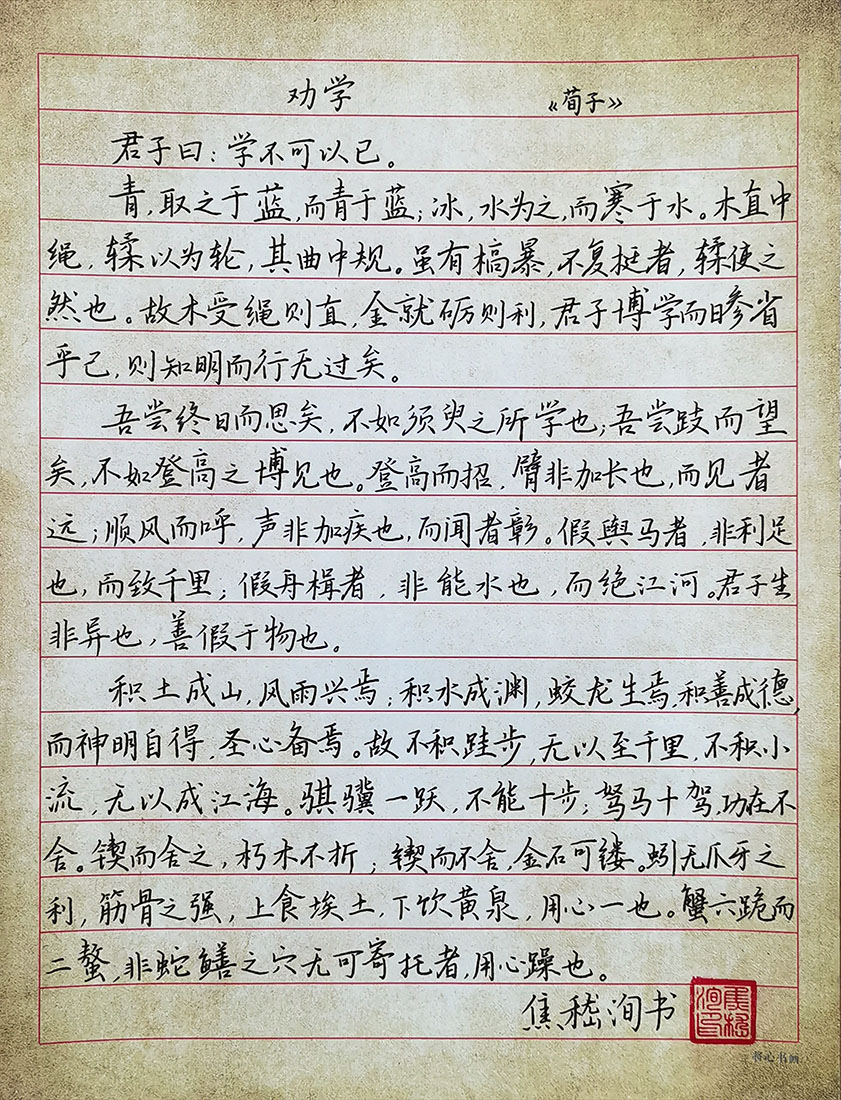 劝学 《荀子》
君子曰：学不可以已。
青，取之于蓝，而青于蓝；冰，水为之，而寒于水。木直中
绳，𫐓以为轮，其曲中规。虽有槁暴，不复挺者，𫐓使之
然也。故木受绳则直，金就砺则利，君子博学而日参省
乎己，则知明而行无过矣。
吾尝终日而思矣，不如须臾之所学也；吾尝跂而望
矣，不如登高之博见也。登高而招，臂非加长也，而见者
远；顺风而呼，声非加疾也，而闻者彰。假舆马者，非利足
也，而致千里；假舟楫者，非能水也，而绝江河。君子生
非异也，善假于物也。
积土成山，风雨兴焉；积水成渊，蛟龙生焉，积善成德，
而神明自得，圣心备焉。故不积跬步，无以至千里，不积小
流，无以成江海。骐骥一跃，不能十步；驽马十驾，功在不
舍。锲而舍之，朽木不折；锲而不舍，金石可镂。蚓无爪牙之
利，筋骨之强，上食埃土，下饮黄泉，用心一也。蟹六跪而
二螯，非蛇鳝之穴无可寄托者，用心躁也。
焦嵇洵书
将心书画